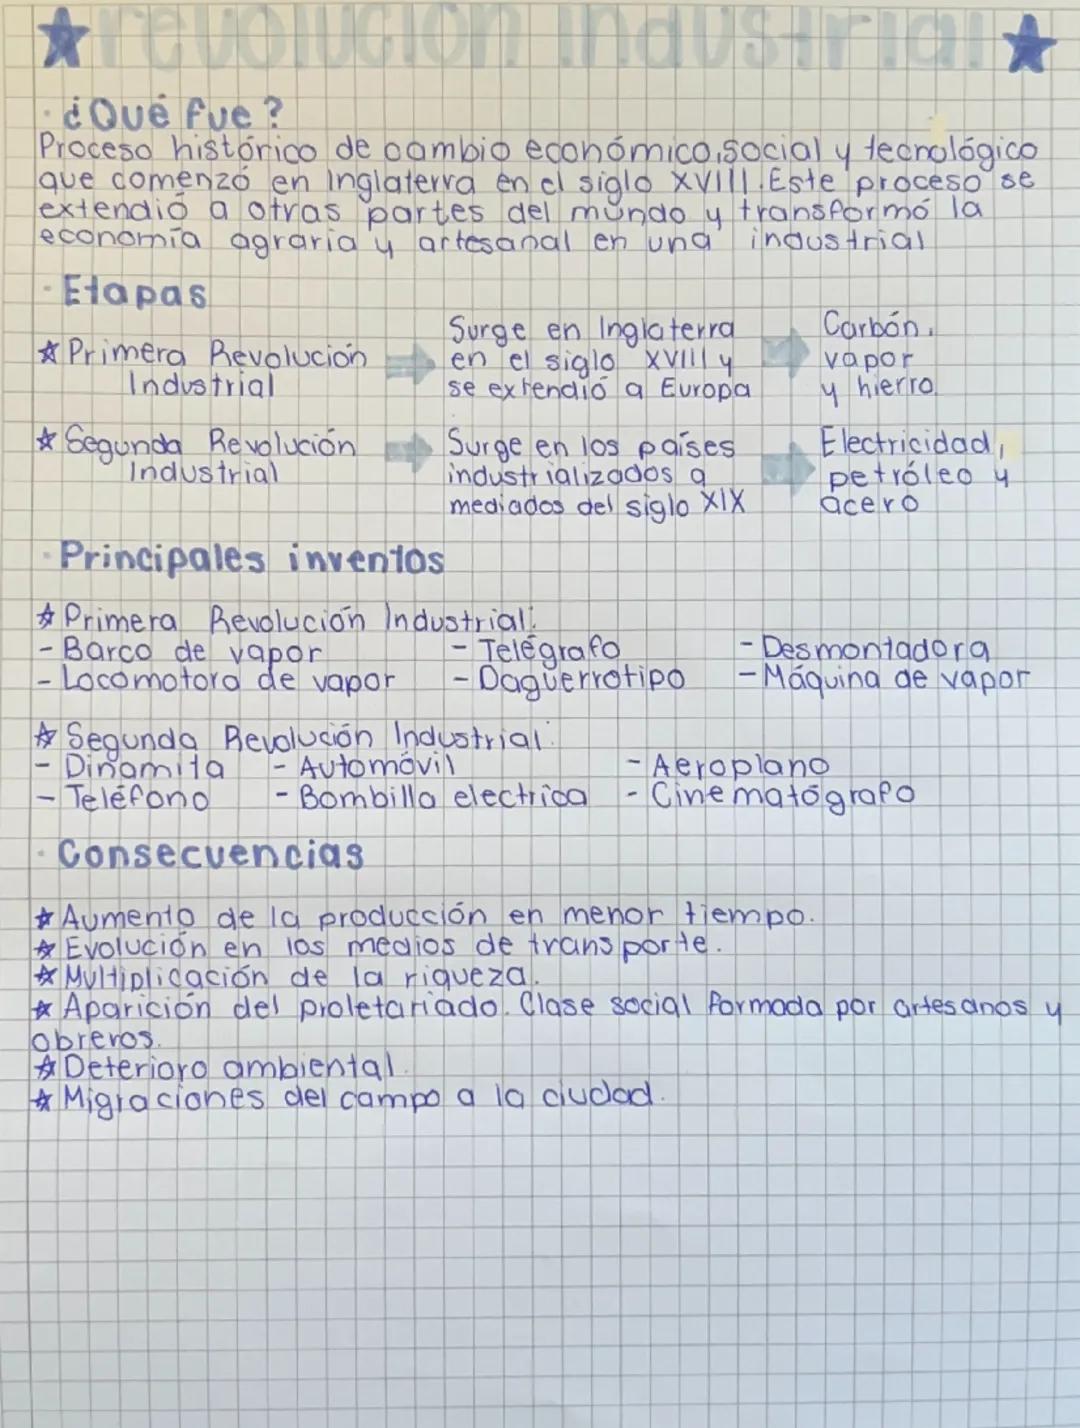 revolución industrial
¿Qué fue?
Proceso histórico de cambio económico, social y tecnológico
que comenzó en Inglaterra en el siglo XVIII. Este proceso se
extendió a otras partes del mundo y transformó la
economía agraria y artesanal en una industrial
Etapas
Primera Revolución
Industrial
Surge en Inglaterra
en el siglo XVIII y
se extendió a Europa
Carbón,
vapor
y hierro.
Segunda Revolución
Industrial
Surge en los países
industrializados a
mediados del siglo XIX
Electricidad,
petróleo y
acero
Principales inventos
Primera Revolución Industrial:
- Barco de vapor - Telégrafo - Desmontadora
- Locomotora de vapor - Daguerrotipo - Máquina de vapor
Segunda Revolución Industrial:
- Dinamita - Automóvil - Aeroplano
- Teléfono - Bombilla electrica - Cinematógrafo
Consecuencias
Aumento de la producción en menor tiempo.
Evolución en los medios de transporte.
Multiplicación de la riqueza.
Aparición del proletariado. Clase social formada por artesanos y
obreros.
Deterioro ambiental.
Migraciones del campo a la ciudad.